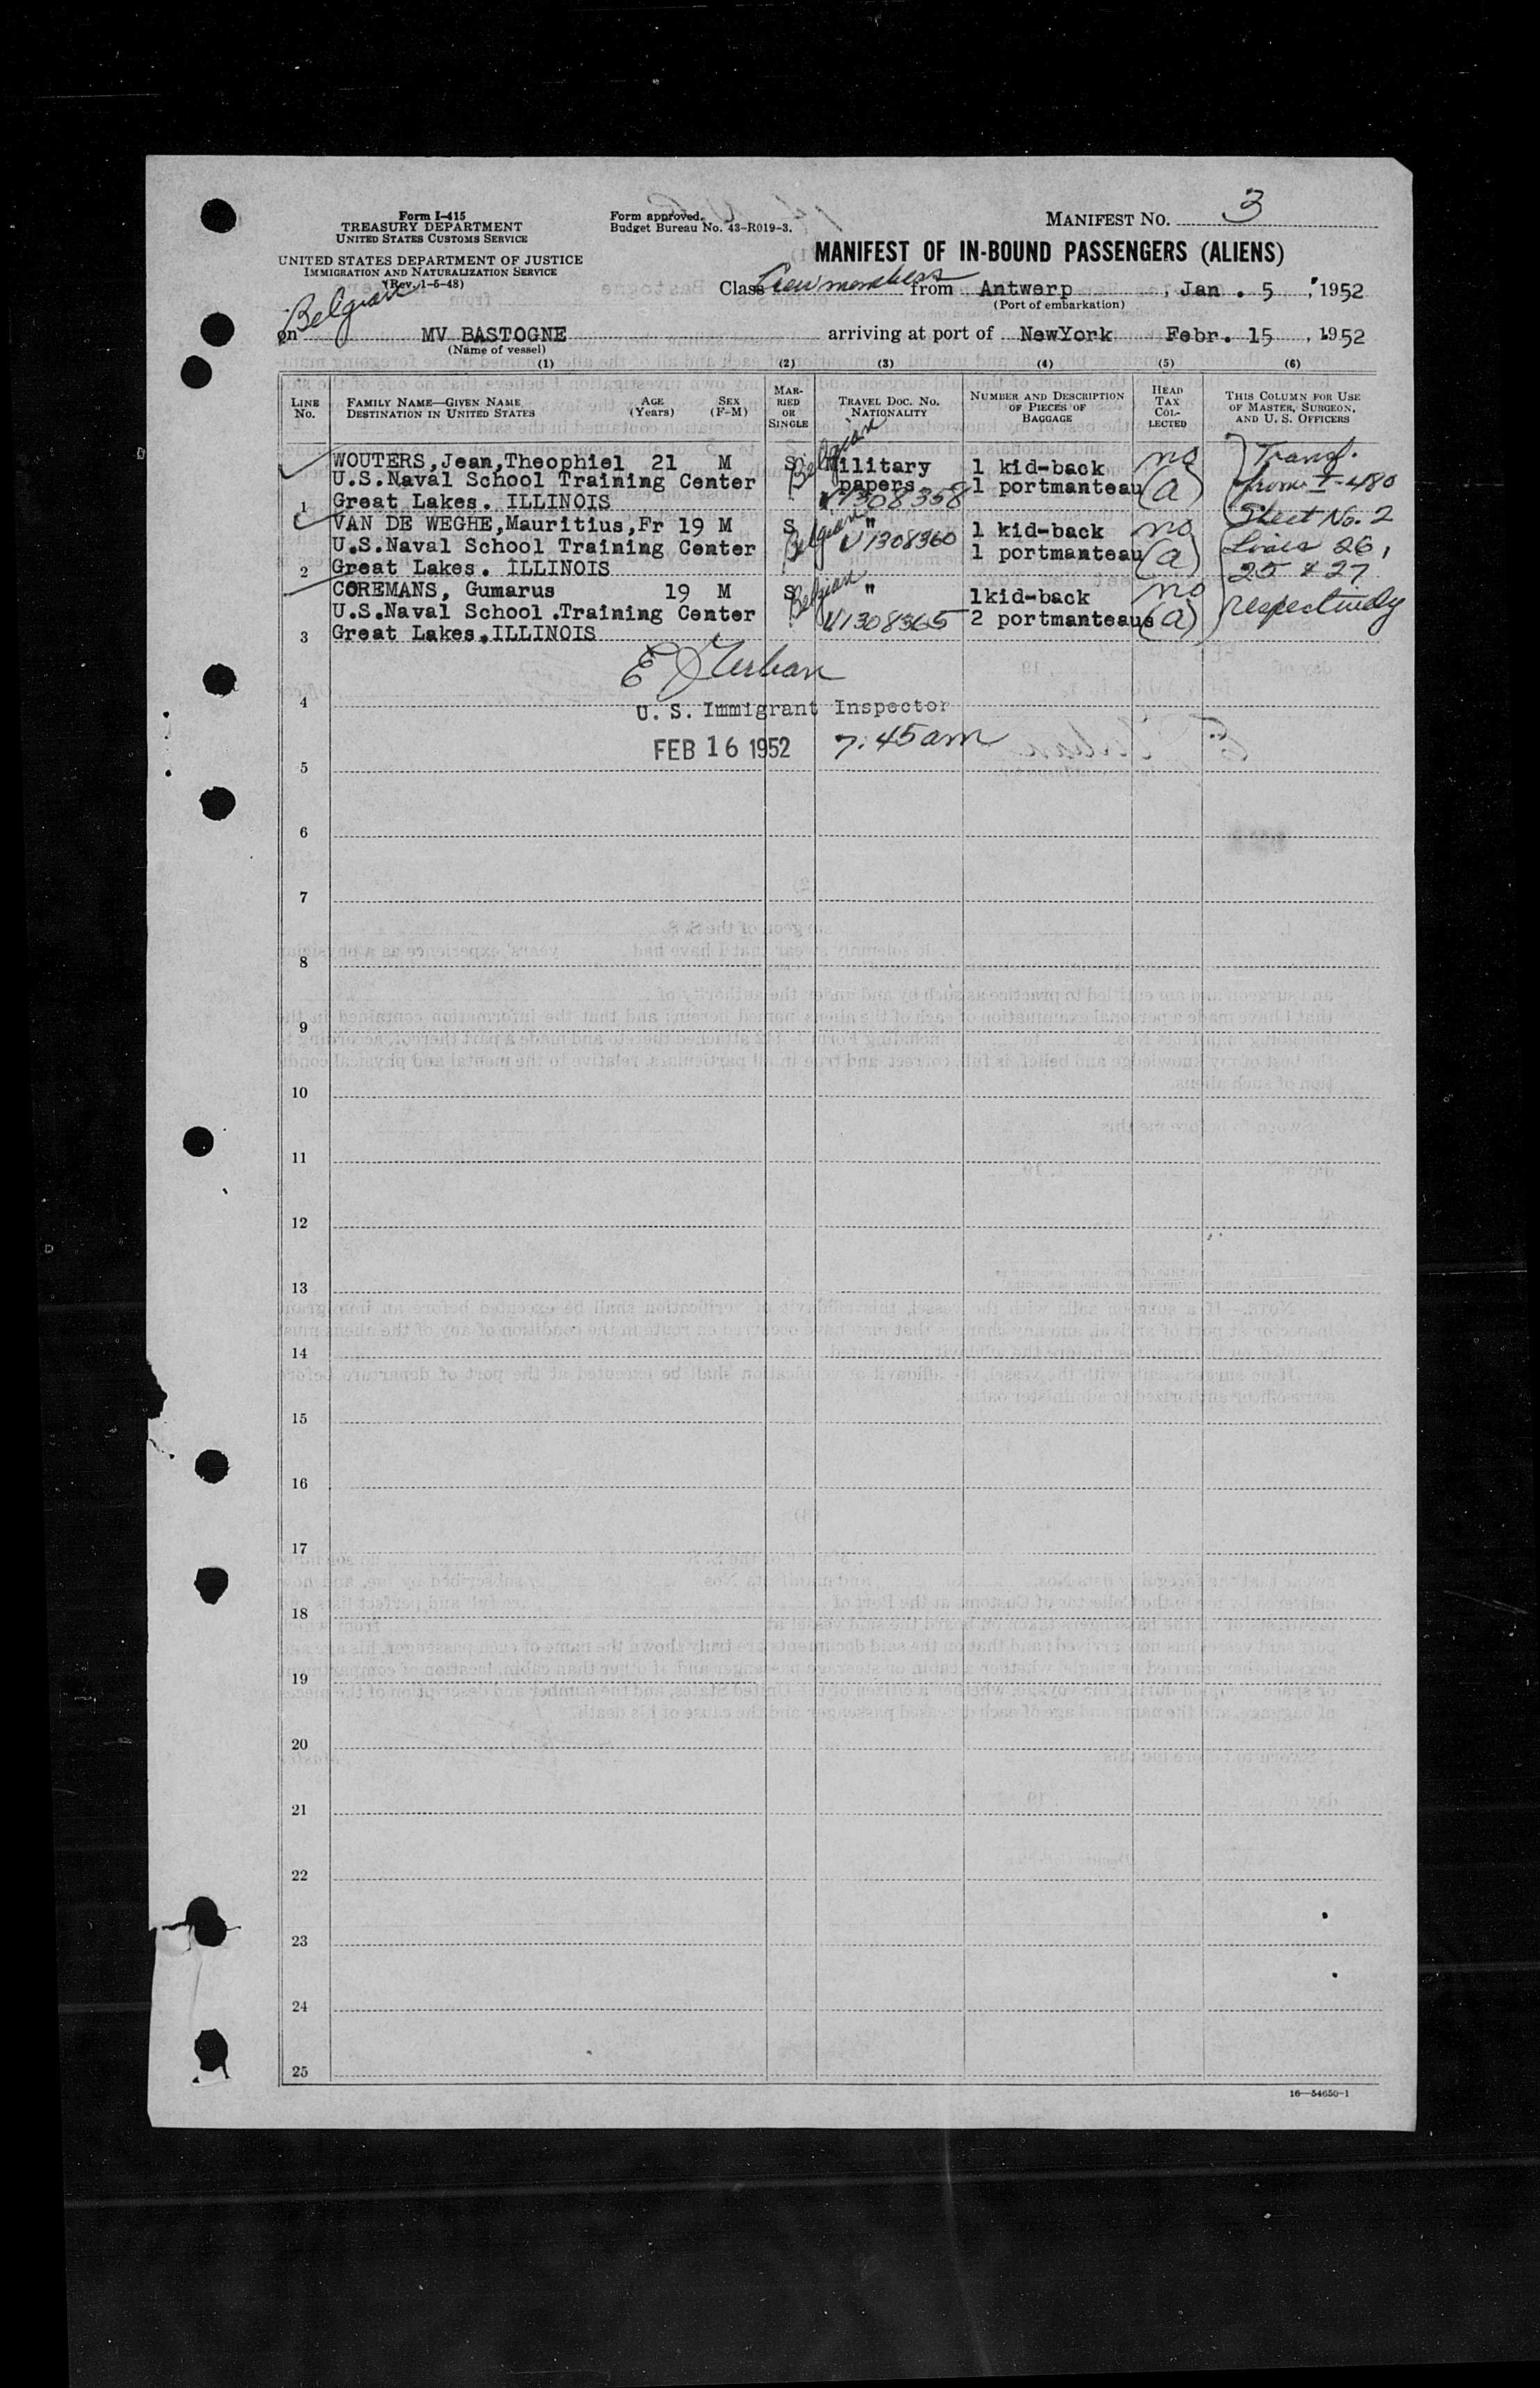 Form I-415
TREASURY DEPARTMENT
UNITED STATES CUSTOMS SERVICE
UNITED STATES DEPARTMENT OF JUSTICE
IMMIGRATION AND NATURALIZATION SERVICE
(Rev. 1-5-48)
Form approved.
Budget Bureau No. 43-R019-3.
MANIFEST NO. 3
MANIFEST OF IN-BOUND PASSENGERS (ALIENS)
Class Crewmembers from Antwerp, Jan. 5, 1952
(Port of embarkation)
Belgian
on MV BASTOGNE arriving at port of NewYork Febr. 15, 1952
(Name of vessel)
(1) (2) (3) (4) (5) (6)
LINE No. FAMILY NAME—GIVEN NAME DESTINATION IN UNITED STATES AGE (Years) SEX (F-M) MARRIED OR SINGLE TRAVEL DOC. NO. NATIONALITY NUMBER AND DESCRIPTION OF PIECES OF BAGGAGE HEAD TAX COLLECTED THIS COLUMN FOR USE OF MASTER, SURGEON, AND U. S. OFFICERS
WOUTERS,Jean,Theophiel 21 M S Belgian Military 1 kid-back no Transf.
U.S.Naval School Training Center papers 1 portmanteau (a) from I-480
1 Great Lakes. ILLINOIS V1308358 Sheet No. 2
VAN DE WEGHE,Mauritius,Fr 19 M S Belgian " 1 kid-back no Lines 26,
U.S.Naval School Training Center V1308360 1 portmanteau (a) 25 & 27
2 Great Lakes. ILLINOIS
COREMANS, Gumarus 19 M S Belgian " 1kid-back no respectively
U.S.Naval School.Training Center V1308365 2 portmanteaus (a)
3 Great Lakes.ILLINOIS
4
U. S. Immigrant Inspector
FEB 16 1952 7:45am
5
6
7
8
9
10
11
12
13
14
15
16
17
18
19
20
21
22
23
24
25
16—54650-1